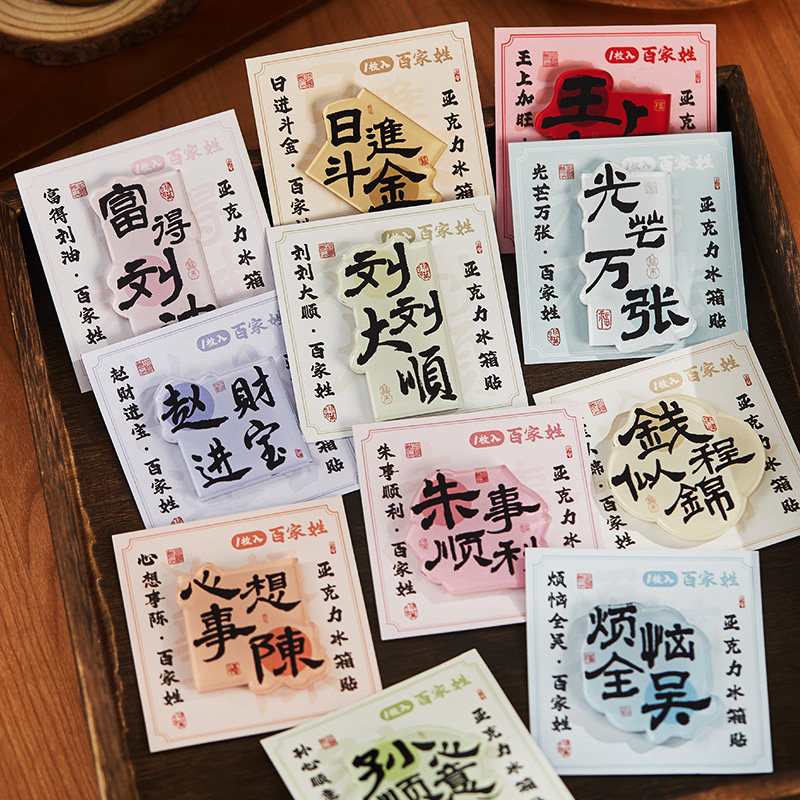 1枚入 百家姓
日进斗金·百家姓
日進
斗金
亚克力冰箱贴
1枚入 百家姓
王上加旺·
王上
亚克
1枚入 百家姓
富得刘油·百家姓
富得
刘油
亚克力冰箱贴
1枚入 百家姓
刘刘大顺·百家姓
刘刘
大順
亚克力冰箱贴
1枚入 百家姓
光芒万张·百家姓
光芒
万张
亚克力冰箱贴
1枚入 百家姓
赵财进宝·百家姓
赵財
进宝
亚克力冰箱贴
1枚入 百家姓
朱事顺利·百家姓
朱事
顺利
亚克力冰箱贴
1枚入 百家姓
百家姓
錢程
似錦
亚克力冰箱贴
1枚入 百家姓
心想事陈·百家姓
心想
事陳
亚克力冰箱贴
1枚入 百家姓
烦恼全吴·百家姓
烦恼
全吴
亚克力冰箱贴
1枚入 百家姓
孙心顺意
孙心
顺意
亚克力冰箱贴